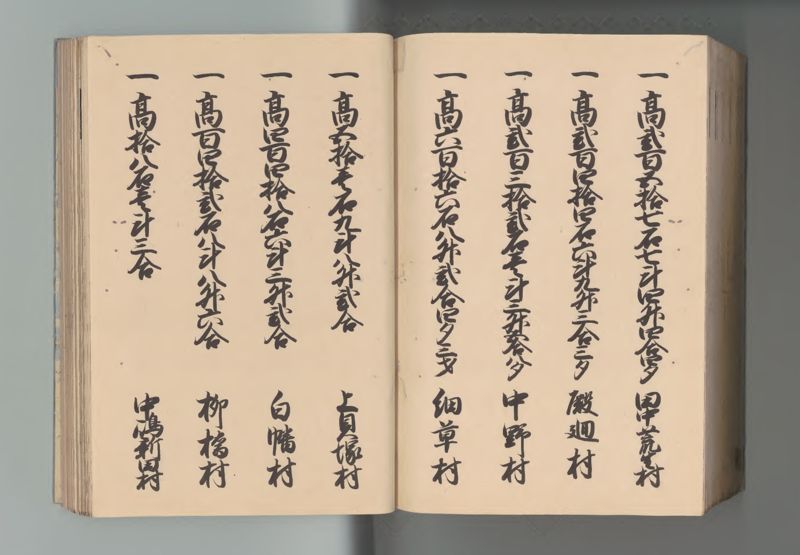 一 高弐百五拾七石七斗四升四合四夕 田中荒生村
一 高弐百四拾四石六斗九升三合三夕 殿廻村
一 高弐百三拾弐石壱斗三升五合八夕 中野村
一 高六百拾六石八升弐合四夕三才 細草村
一 高五拾壱石九斗八升弐合 上貝塚村
一 高四百四拾八石六斗三升弐合 白幡村
一 高百四拾弐石八斗八升六合 柳橋村
一 高拾八石壱斗三合 中嶋新田村